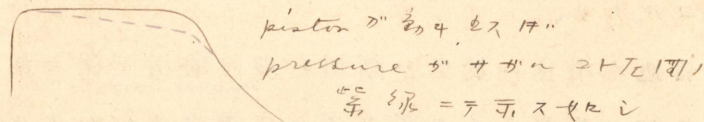 piston ガ動キ出スサガ
pressure ガサガルコト左図ノ
紫線ニテ示ス如シ